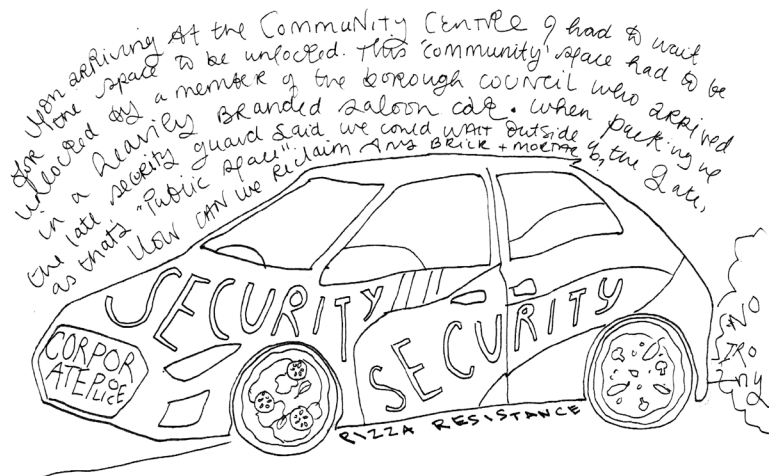 Upon arriving at the Community Centre I had to wait
for the space to be unlocked. This 'community' space had to be
unlocked by a member of the borough council who arrived
in a heavily BRANDED saloon car. When packing up
the late security guard said we could WAIT outside of the gate,
as that's "Public space".
HOW CAN WE RECLAIM ANY BRICK + MORTAR
SECURITY
SECURITY
CORPOR
ATE POLICE
PIZZA RESISTANCE
NO
IRO
Ny